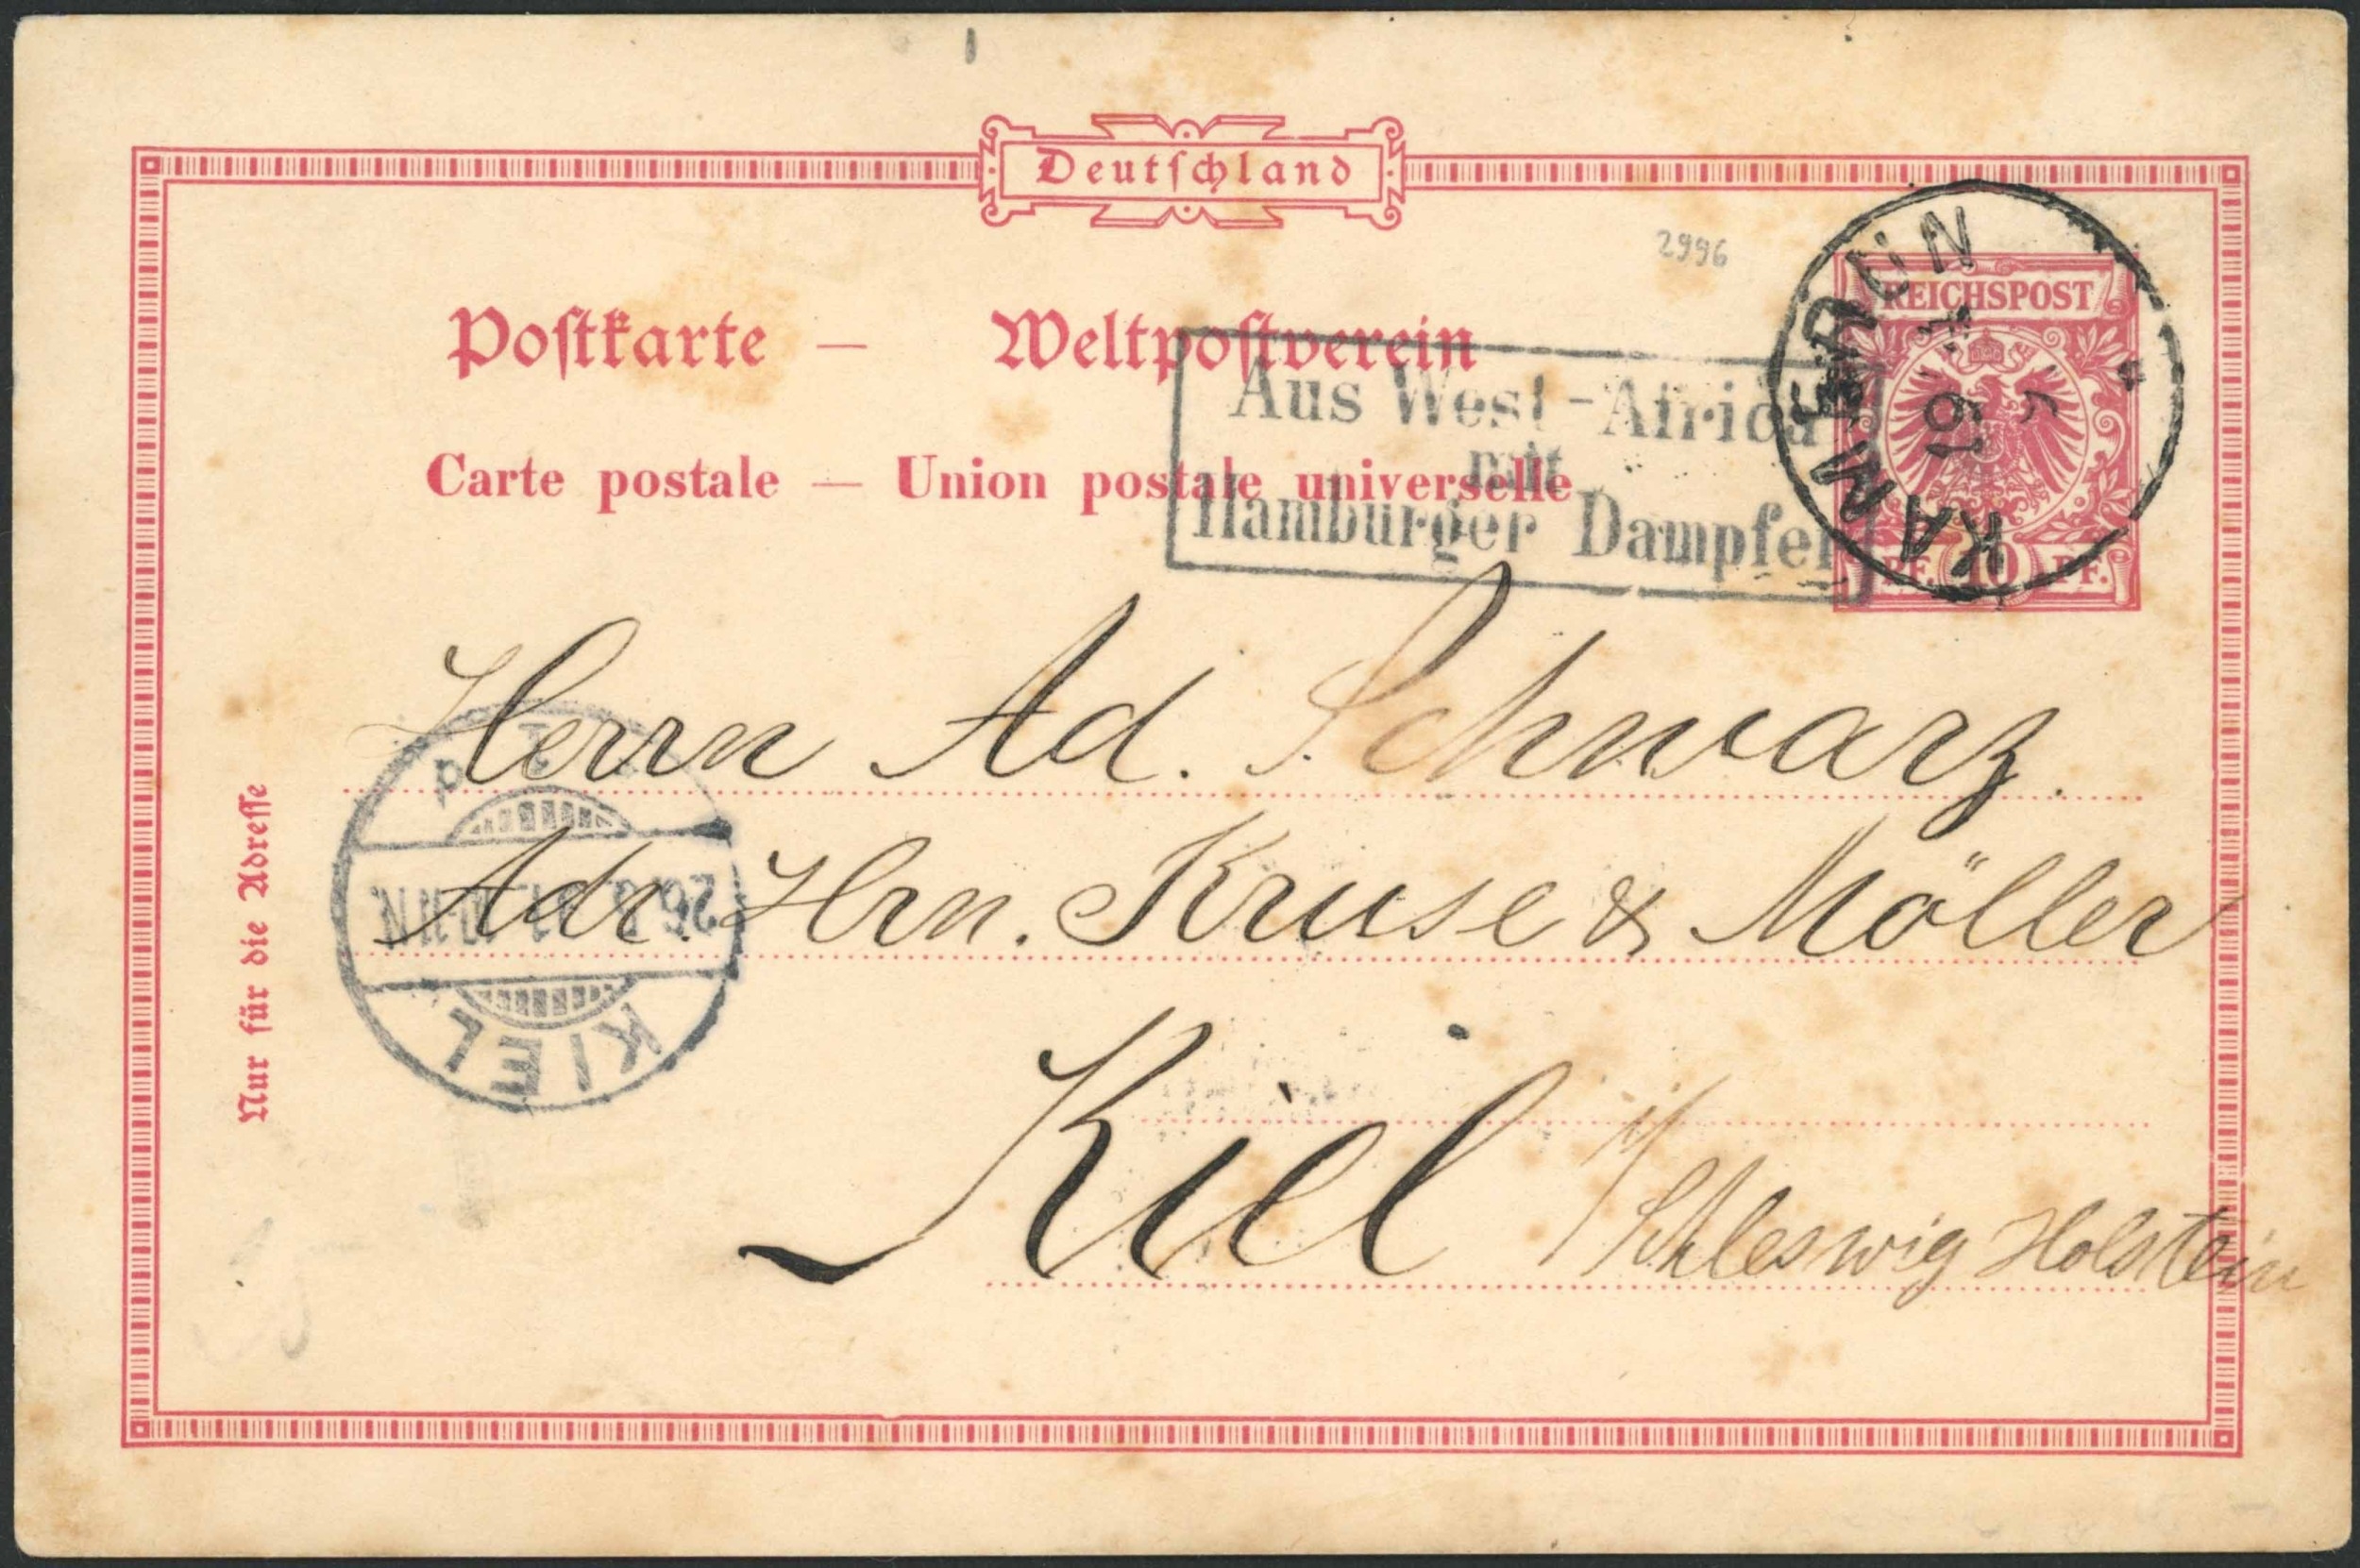 Deutschland
2996
REICHSPOST
KAMERUN
19
Postkarte — Weltpostverein
Aus West-Africa
mit
Hamburger Dampfer
Carte postale — Union postale universelle
PF. 10 PF.
Herrn Ad. Schwarz.
Adr. Hrn. Kruse & Möller
Kiel i/Schleswig Holstein
Nur für die Adresse
KIEL